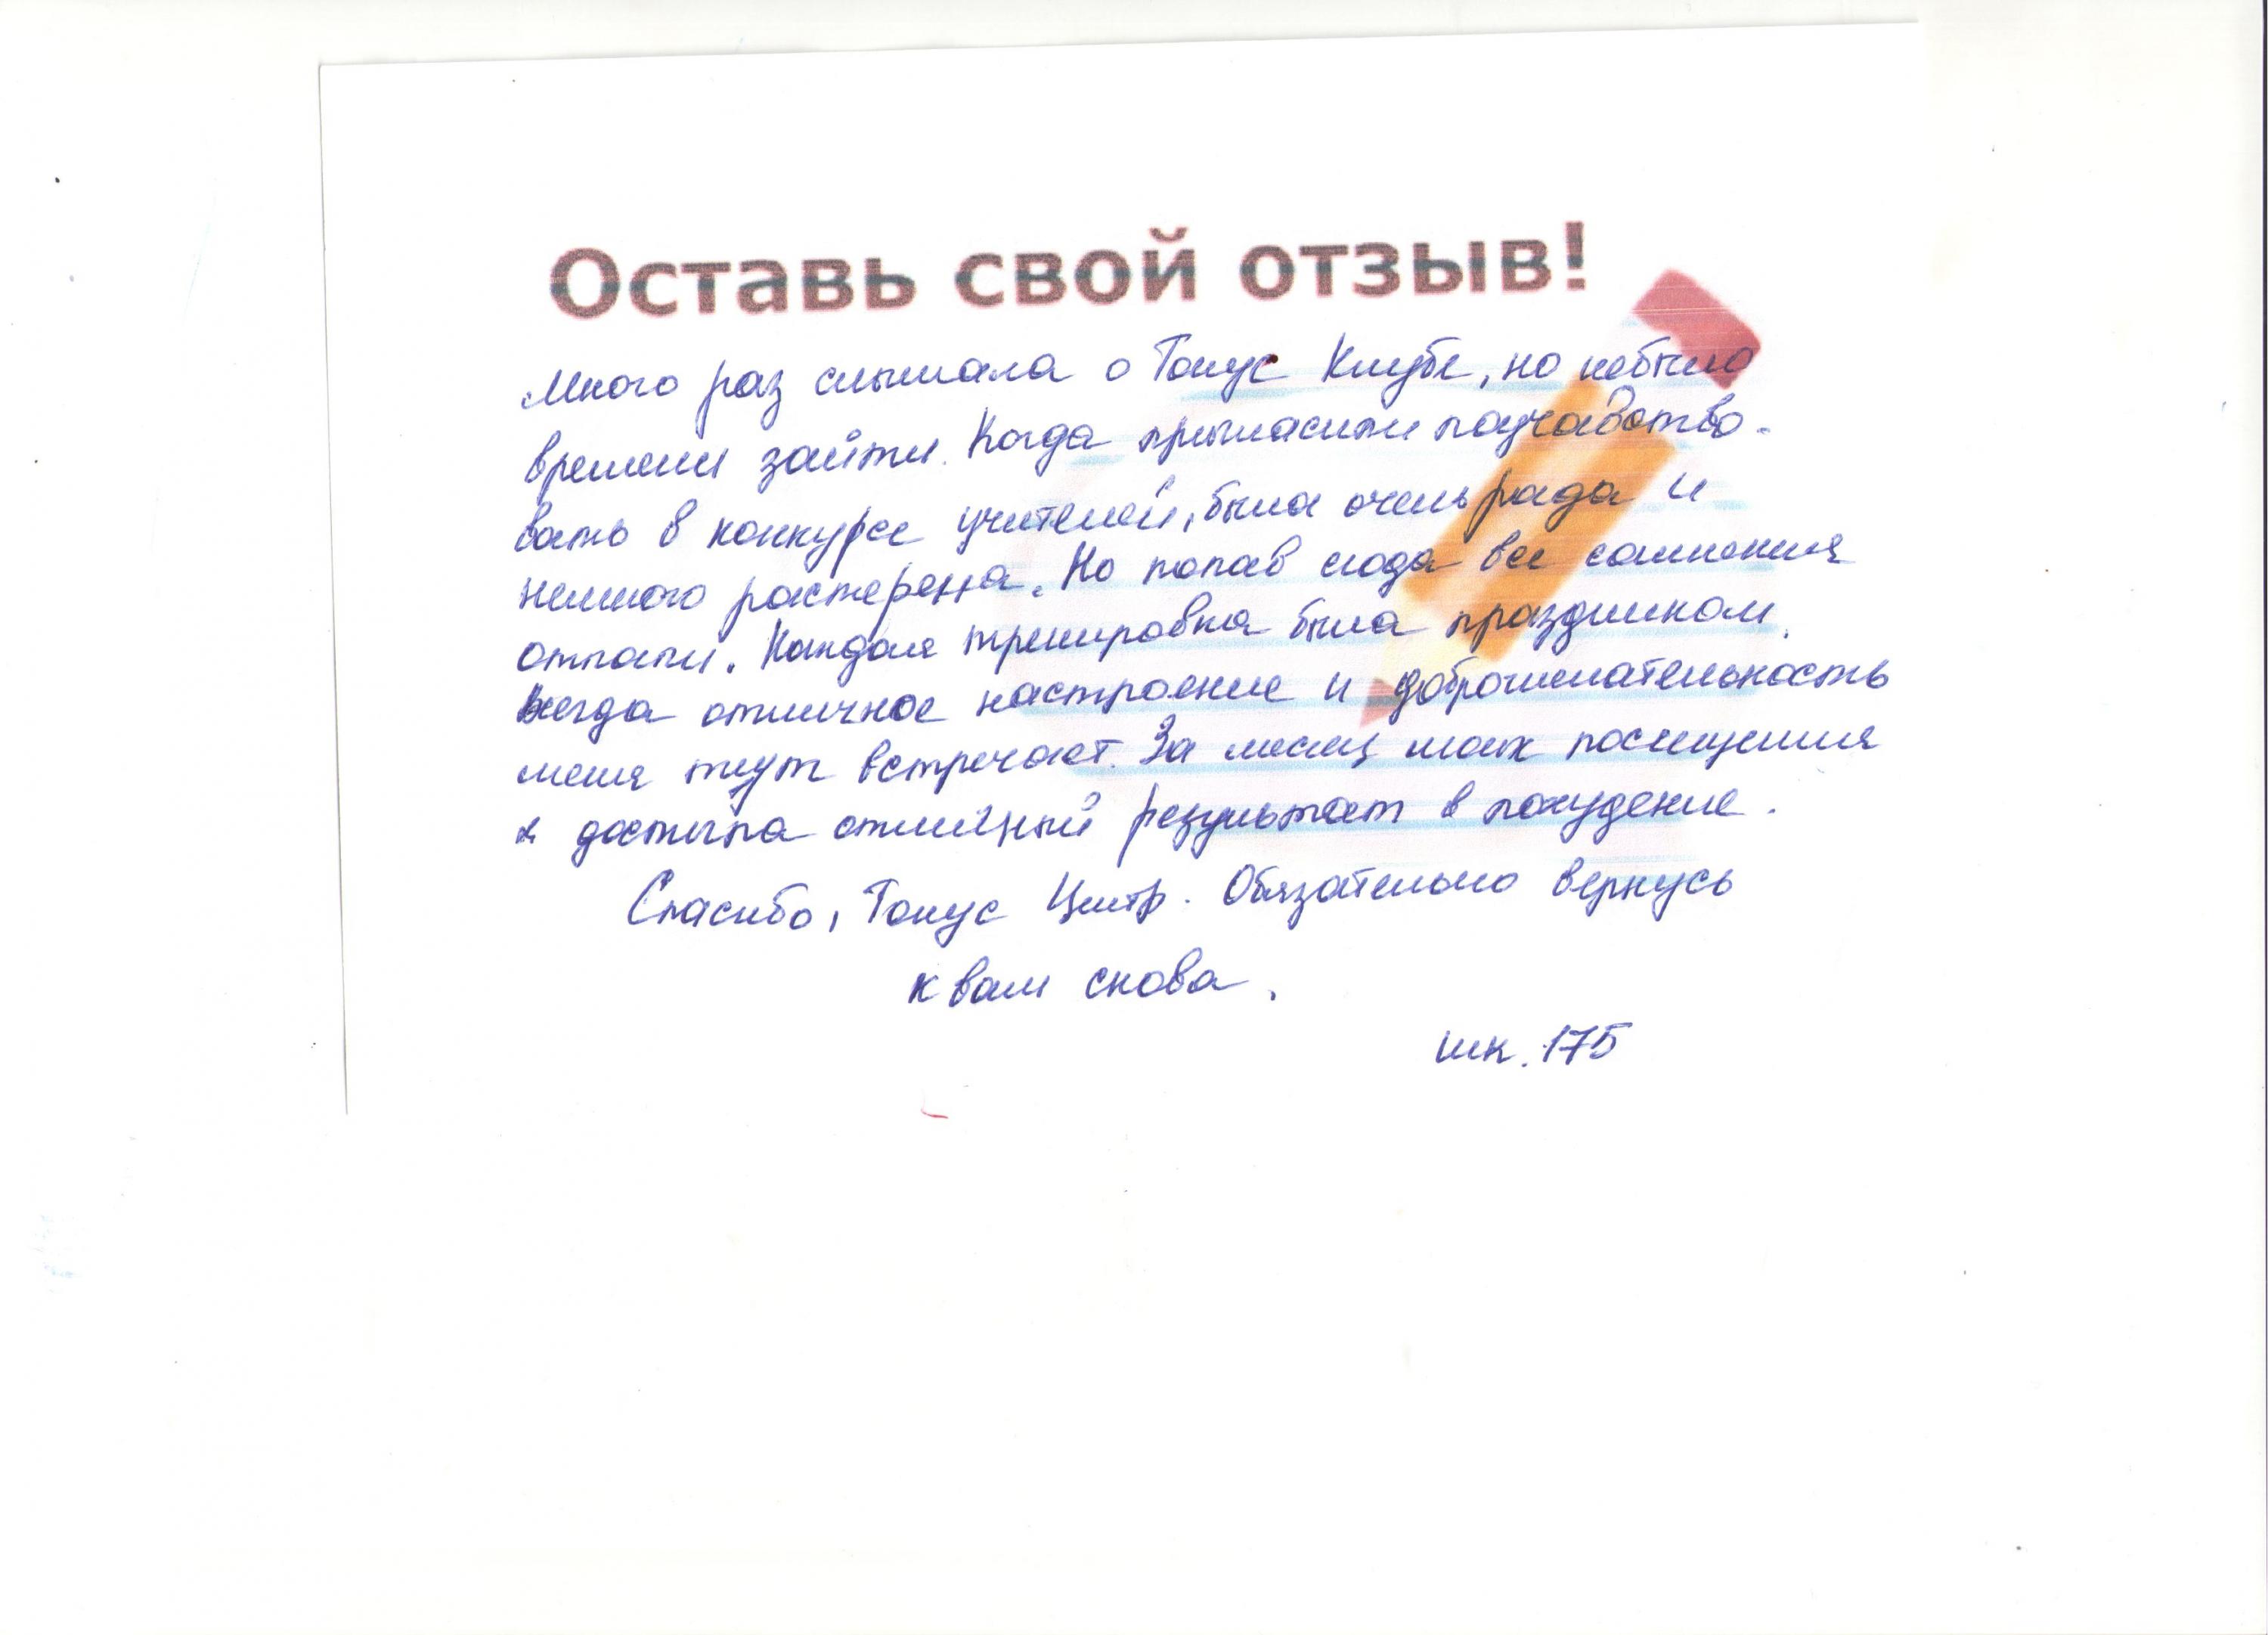 Оставь свой отзыв!
Много раз слышала о Тонус Клубе, но небыло
времени зайти. Когда пригласили поучавство-
вать в конкурсе учителей, была очень рада и
немного растеренна. Но попав сюда все сомнения
отпали. Каждая тренировка была праздником.
Всегда отличное настроение и доброжелательность
меня тут встречает. За месяц моих посещения
я достигла отличный результат в похудение.
Спасибо, Тонус Центр. Обязательно вернусь
к вам снова.
шк. 175